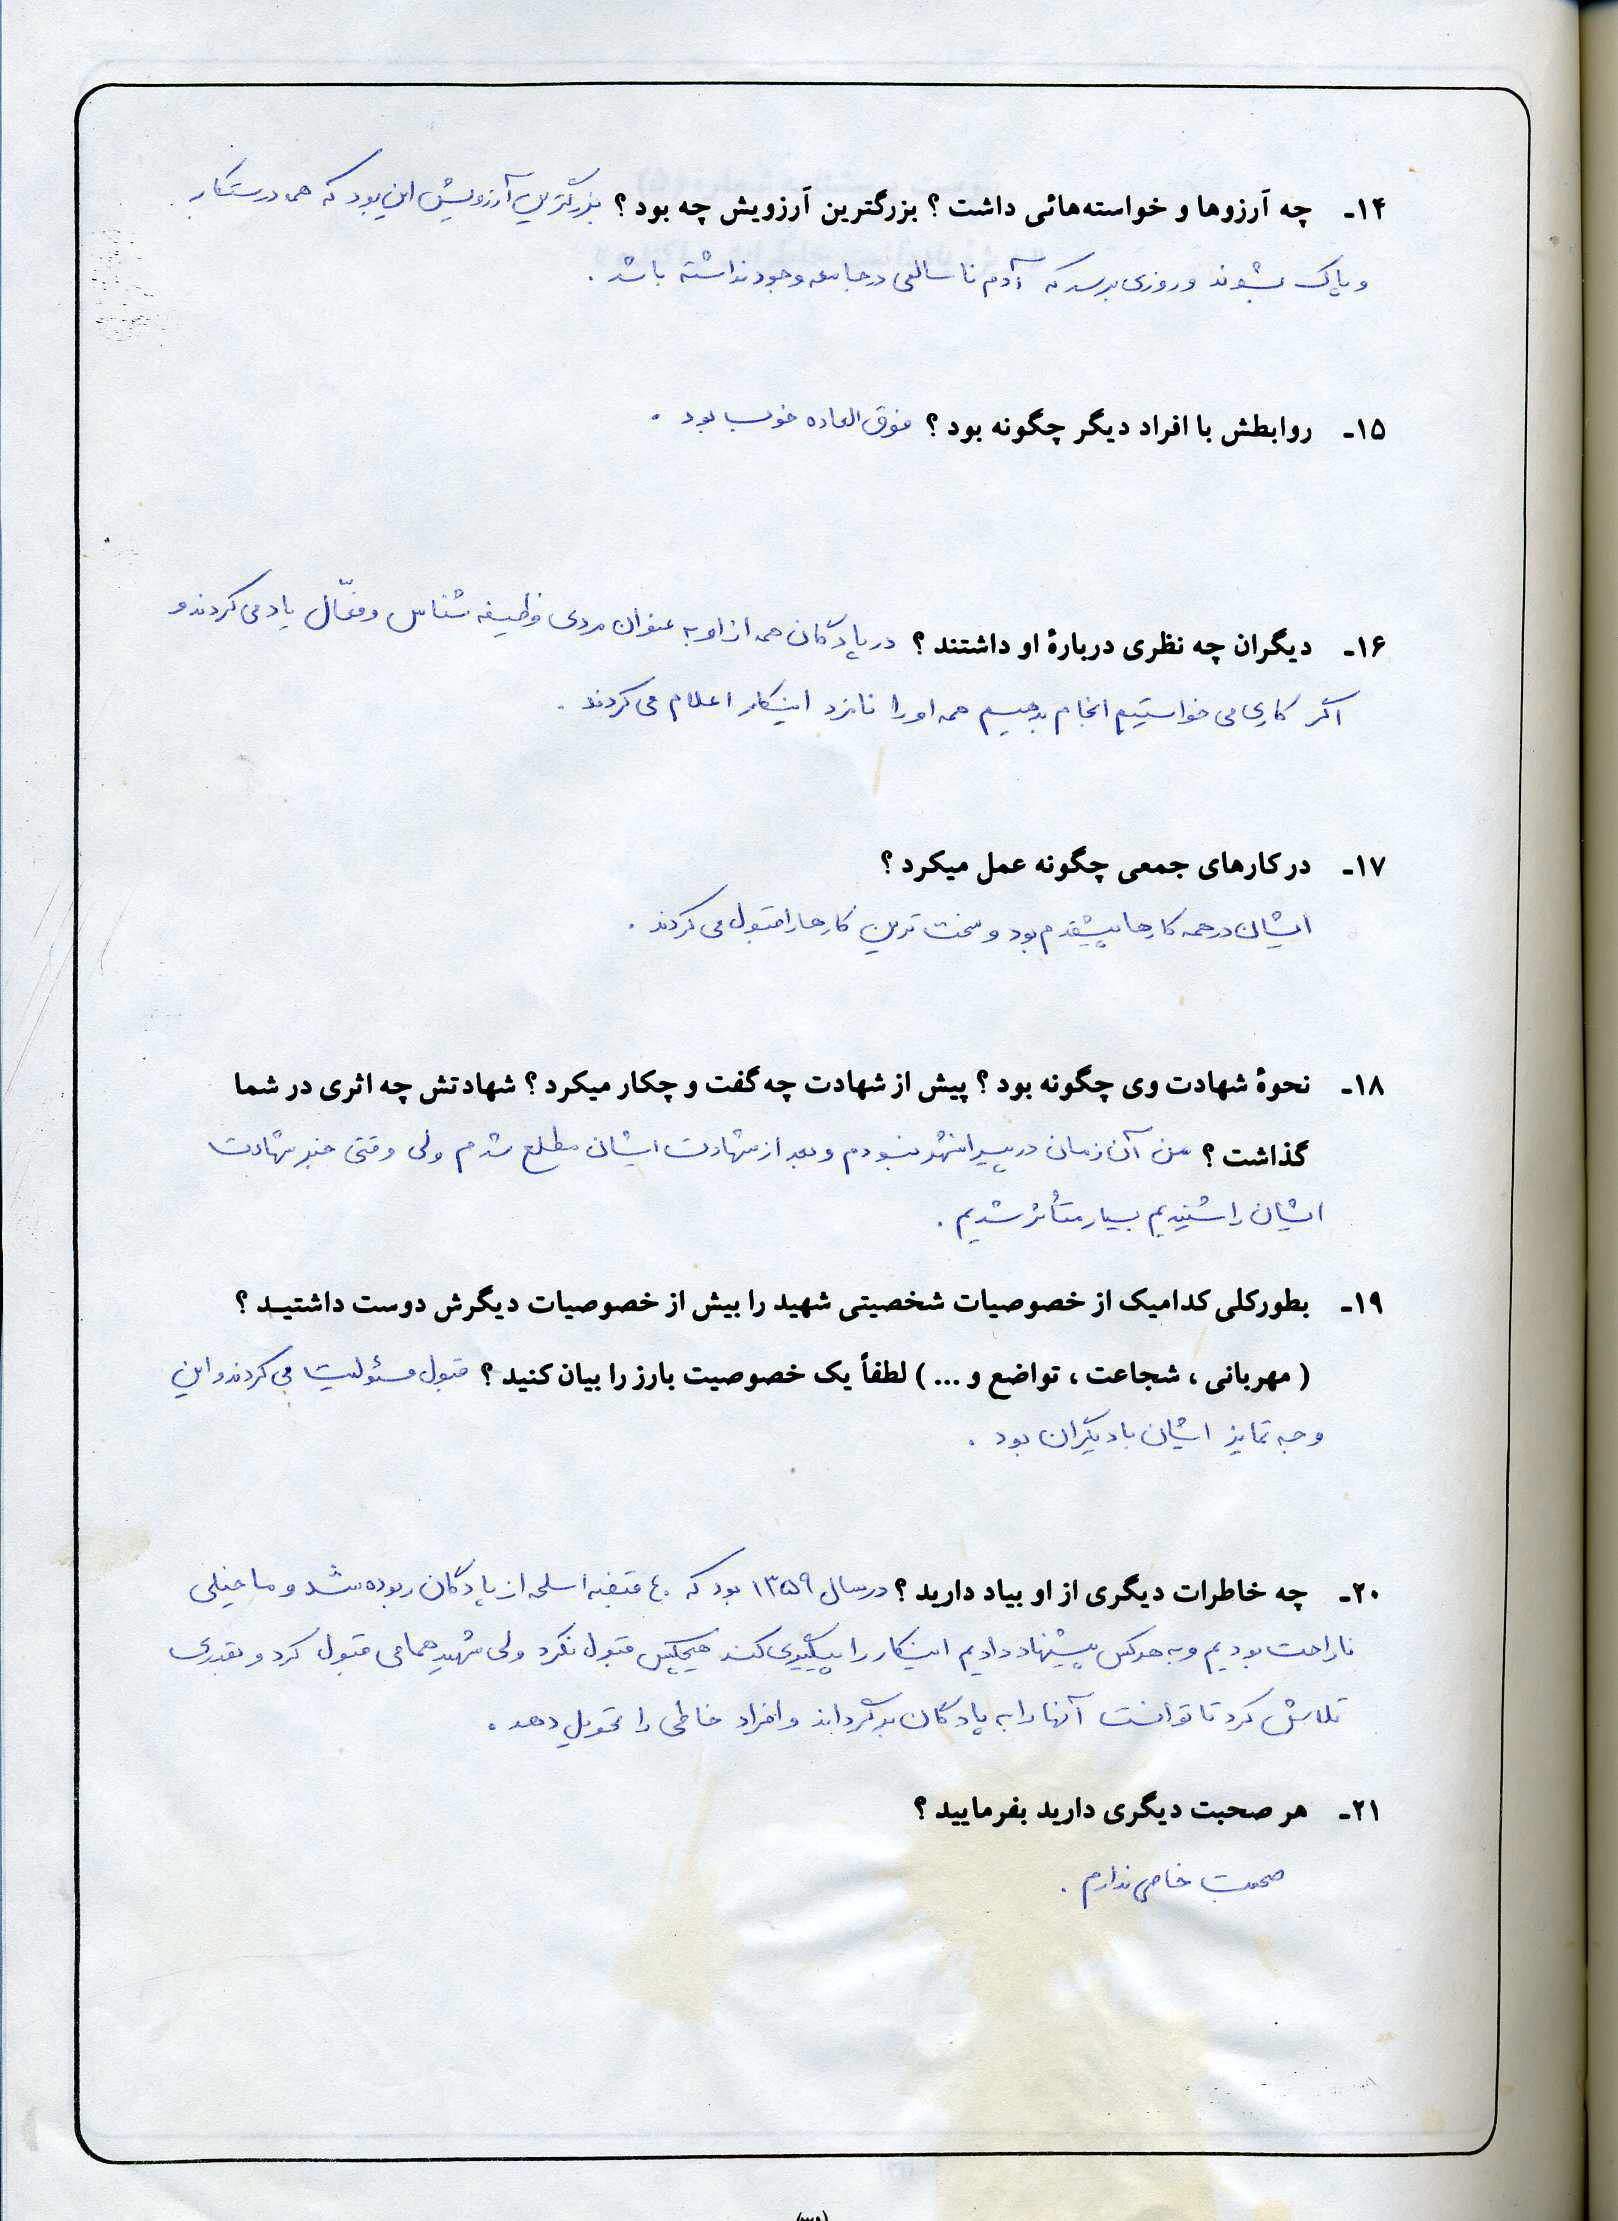 ۱۴ـ چه آرزوها و خواسته‌هائی داشت ؟ بزرگترین آرزویش چه بود ؟ بزرگترین آرزویش این بود که همه درستکار
و پاک بشوند و روزی برسد که آدم ناسالمی در جامعه وجود نداشته باشد .
۱۵ـ روابطش با افراد دیگر چگونه بود ؟ فوق العاده خوب بود .
۱۶ـ دیگران چه نظری دربارهٔ او داشتند ؟ در پادگان همه از او به عنوان مردی وظیفه شناس و فعّال یاد می کردند و
اگر کاری می خواستیم انجام بدهیم همه او را نامزد اینکار اعلام می کردند .
۱۷ـ در کارهای جمعی چگونه عمل میکرد ؟
ایشان در همه کارها پیشقدم بود و سخت ترین کارها را قبول می کردند .
۱۸ـ نحوهٔ شهادت وی چگونه بود ؟ پیش از شهادت چه گفت و چکار میکرد ؟ شهادتش چه اثری در شما
گذاشت ؟ من آن زمان در پیرانشهر نبودم و بعد از شهادت ایشان مطلع شدم ولی وقتی خبر شهادت
ایشان را شنیدیم بسیار متأثر شدیم .
۱۹ـ بطورکلی کدامیک از خصوصیات شخصیتی شهید را بیش از خصوصیات دیگرش دوست داشتیـد ؟
( مهربانی ، شجاعت ، تواضع و ... ) لطفاً یک خصوصیت بارز را بیان کنید ؟ قبول مسئولیت می کردند و این
وجه تمایز ایشان با دیگران بود .
۲۰ـ چه خاطرات دیگری از او بیاد دارید ؟ در سال ۱۳۵۹ بود که ۴۰ قبضه اسلحه از پادگان ربوده شد و ما خیلی
ناراحت بودیم و به هرکس پیشنهاد دادیم اینکار را پیگیری کند هیچکس قبول نکرد ولی شهید همامی قبول کرد و بقدری
تلاش کرد تا توانست آنها را به پادگان برگرداند و افراد خاطی را تحویل دهد .
۲۱ـ هر صحبت دیگری دارید بفرمایید ؟
صحبت خاصی ندارم .